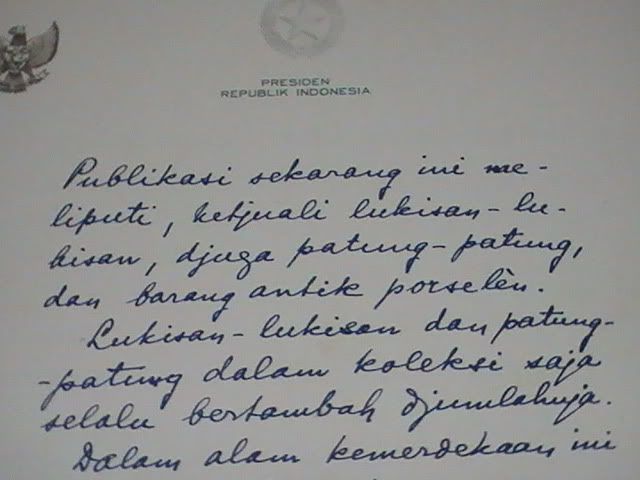 PRESIDEN
REPUBLIK INDONESIA
Publikasi sekarang ini me-
liputi, ketjuali lukisan-lu-
kisan, djuga patung-patung,
dan barang antik porselèn.
Lukisan-lukisan dan patung-
-patung dalam koleksi saja
selalu bertambah djumlahnja.
Dalam alam kemerdekaan ini